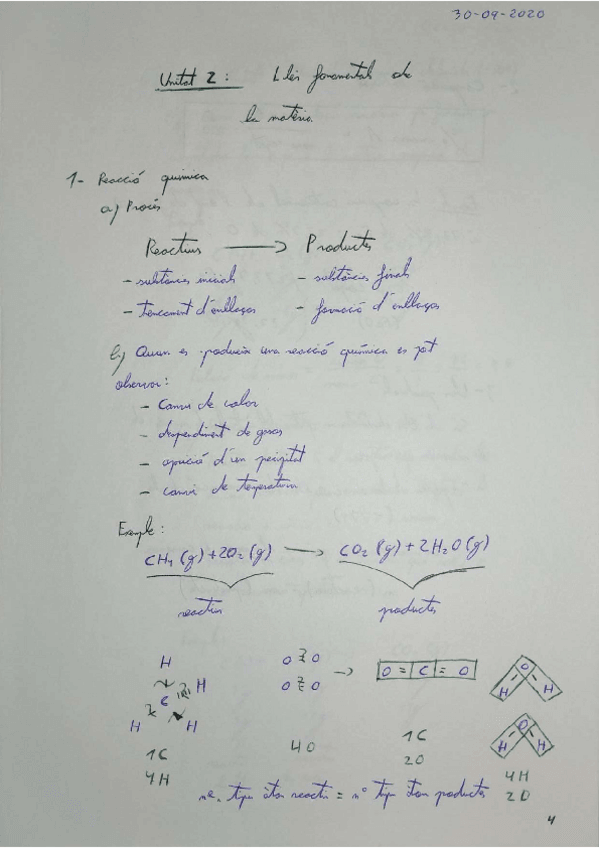 30-09-2020
Unitat 2: Lleis fonamentals de
la matèria.
1- Reacció química
a) Procés
Reactius → Productes
- substàncies inicials - substàncies finals
- trencament d'enllaços - formació d'enllaços
b) Quan es produeix una reacció química es pot
observar:
- Canvi de color
- despendiment de gasos
- aparició d'un precipitat
- canvi de temperatura
Exemple:
CH4 (g) + 2O2 (g) → CO2 (g) + 2H2O (g)
reactius productes
H
O O → O = C = O O
C H O O H H
H H O
H H
1C 4O 1C
4H 2O 4H
2O
nº. tipus àtoms reactius = nº tipus àtoms productes
4